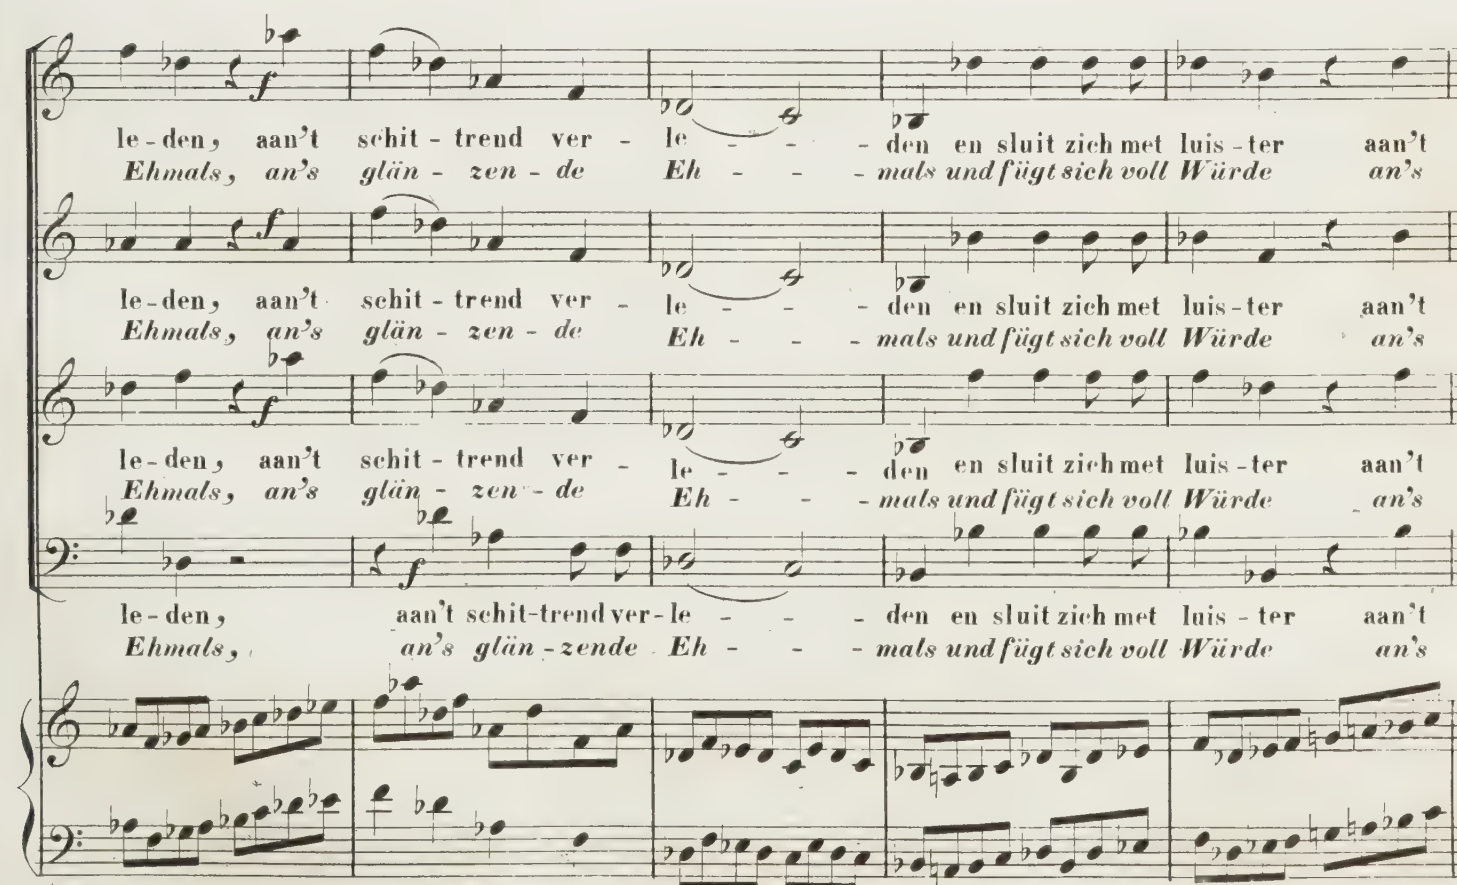 f
le - den, aan't schit - trend ver - le - - - den en sluit zich met luis - ter aan't
Ehmals, an's glän - zen - de Eh - - - mals und fügt sich voll Würde an's
f
le - den, aan't schit - trend ver - le - - - den en sluit zich met luis - ter aan't
Ehmals, an's glän - zen - de Eh - - - mals und fügt sich voll Würde an's
f
le - den, aan't schit - trend ver - le - - - den en sluit zich met luis - ter aan't
Ehmals, an's glän - zen - de Eh - - - mals und fügt sich voll Würde an's
f
le - den, aan't schit - trend ver - le - - - den en sluit zich met luis - ter aan't
Ehmals, an's glän - zende Eh - - - mals und fügt sich voll Würde an's